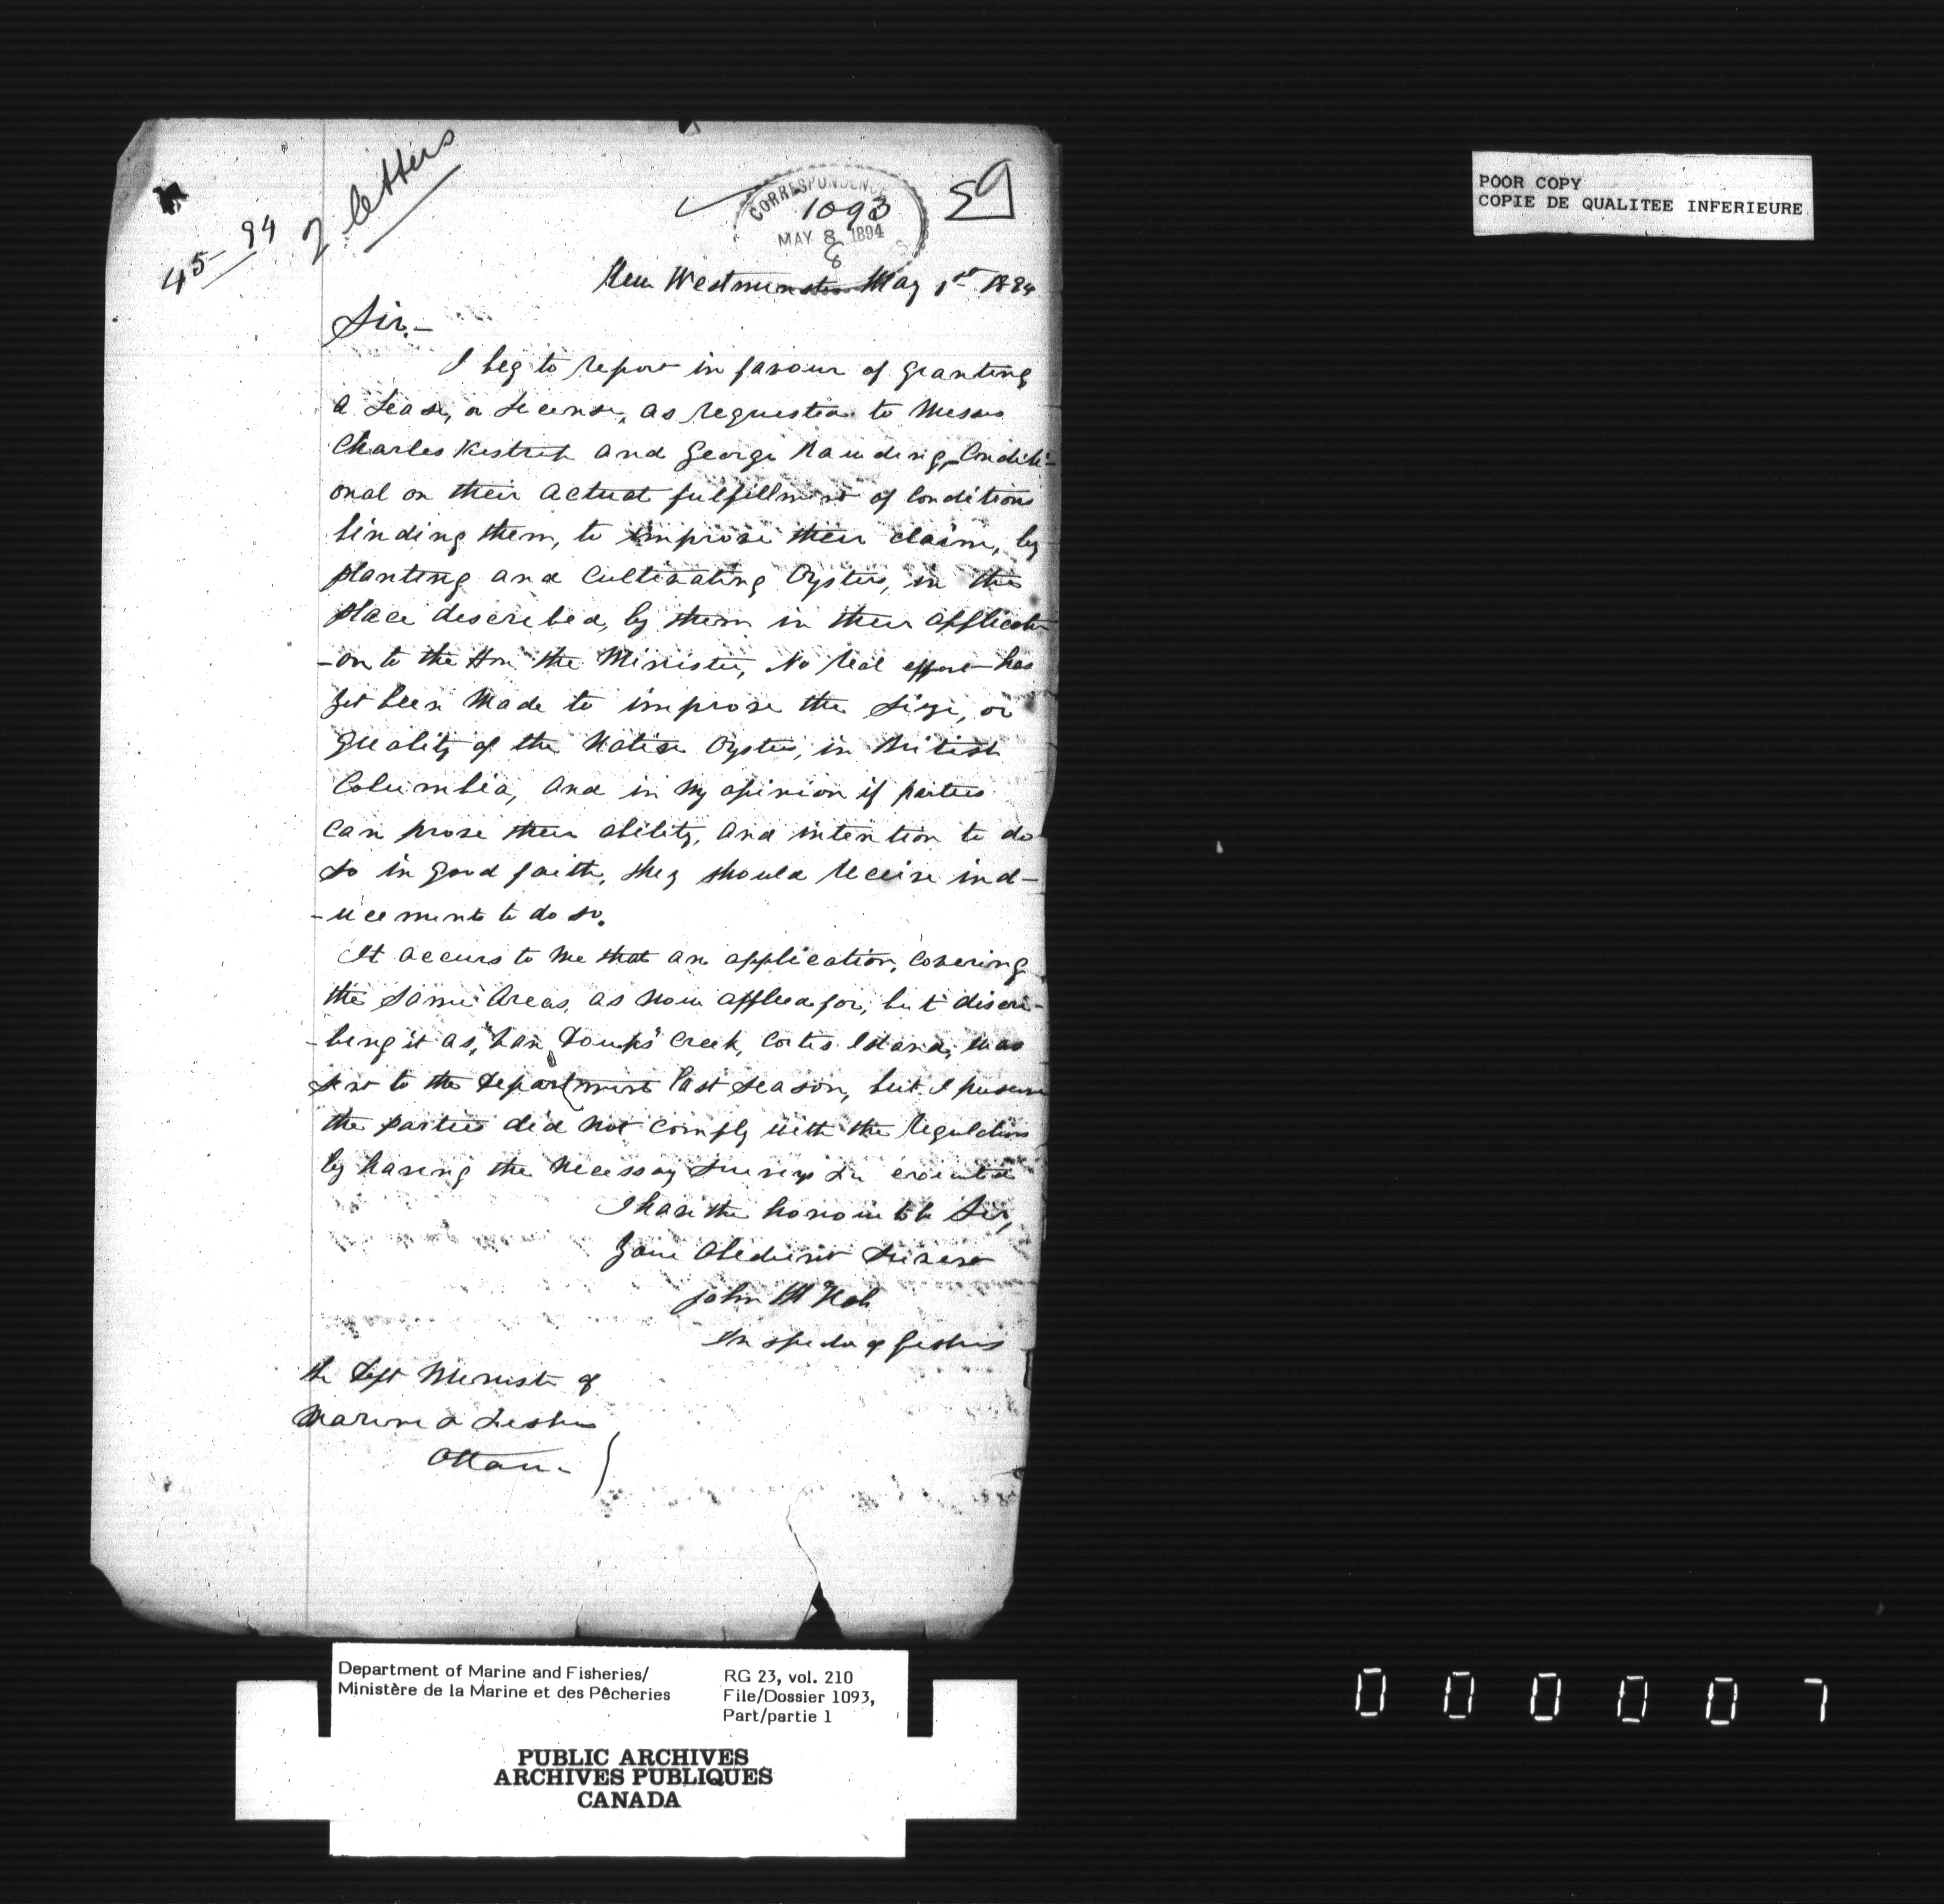 2 letters
45-94
59
CORRESPONDENCE
1093
MAY 8 1894
New Westminster May 1st 1894
Sir,-
I beg to report in favour of granting
a Lease, or License, as requested to Messrs
Charles and George Conditi-
onal on their actual fulfillment of Conditions
binding them, to improve their claim, by
planting and Cultivating Oysters, in the
place described, by them in their applicati-
-on to the Hon the Minister, No real effort has
yet been Made to improve the size, or
Quality of the Native Oyster, in British
Columbia, and in my opinion if parties
can prove their ability, and intention to do
so in good faith, they should receive ind-
-ucements to do so.
It occurs to me that an application, covering
the same Areas, as now applied for, but discri-
-bing it as, Creek, Cortes Island, was
sent to the Department last season, but I presume
the parties did not comply with the regulations
by having the necessary Surveys executed
I have the honour to be Sir,
Your Obedient Servant
John McNab
Inspector of Fisheries
The Dept Minister of
Marine & Fisheries
Ottawa
POOR COPY
COPIE DE QUALITEE INFERIEURE
Department of Marine and Fisheries/
Ministère de la Marine et des Pêcheries
RG 23, vol. 210
File/Dossier 1093,
Part/partie 1
PUBLIC ARCHIVES
ARCHIVES PUBLIQUES
CANADA
0 0 0 0 0 7